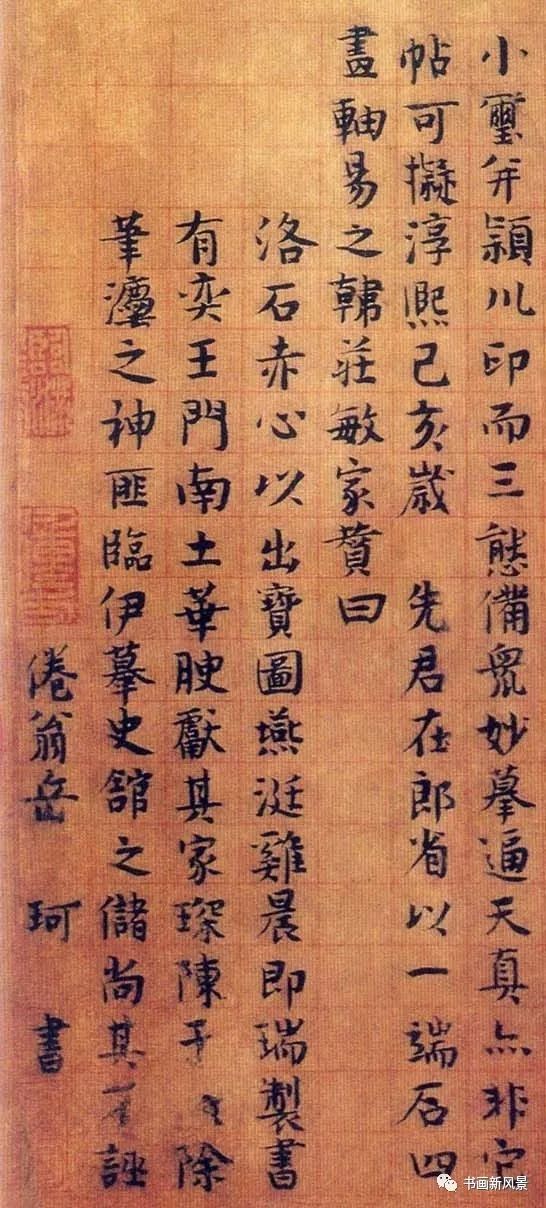 小璽并潁川印而三態備衆妙摹逼天真亦非官
帖可擬淳熙己亥歲 先君在郎省以一端石四
畫軸易之韓莊敏家贊曰
洛石赤心以出寶圖燕涎雞晨即瑞製書
有奕王門南土華腴獻其家琛陳于 除
筆瀍之神匪臨伊摹史館之儲尚其 誣
倦翁岳 珂 書
书画新风景